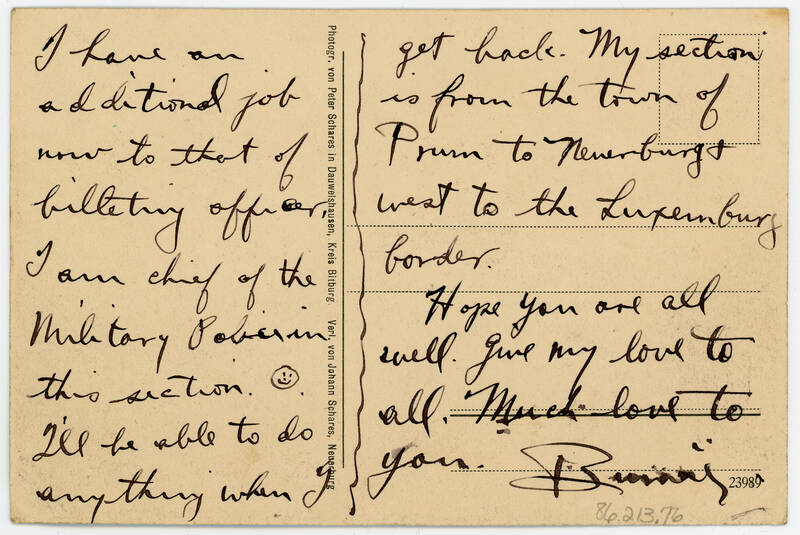 I have an
additional job
now to that of
billeting officer.
I am chief of the
Military Police in
this section.
I'll be able to do
anything when I
get back. My section
is from the town of
Prum to Neuerburg +
west to the Luxemburg
border.
Hope you are all
well. Give my love to
all. Much love to
you.
Photogr. von Peter Schares in Dauwelshausen, Kreis Bitburg. Verl. von Johann Schares, Neuerburg
23989
86.213.76